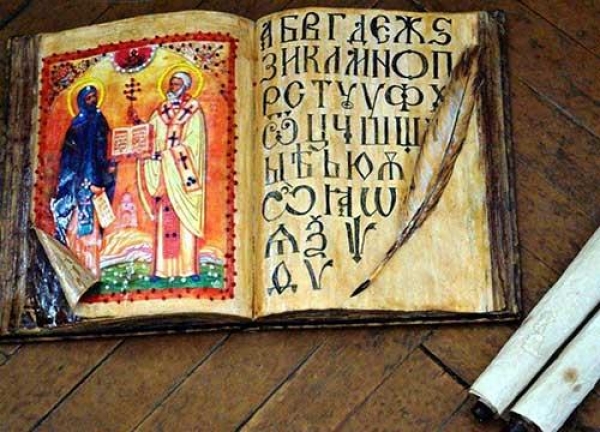 АБВГДЕЖЅ
ЗИКЛМНОП
РСТУУФХ
ѾЦЧШЩ
ЫѢЬЮЯ
ѼꙖѠ
ѦѮѰ
ѲѴ